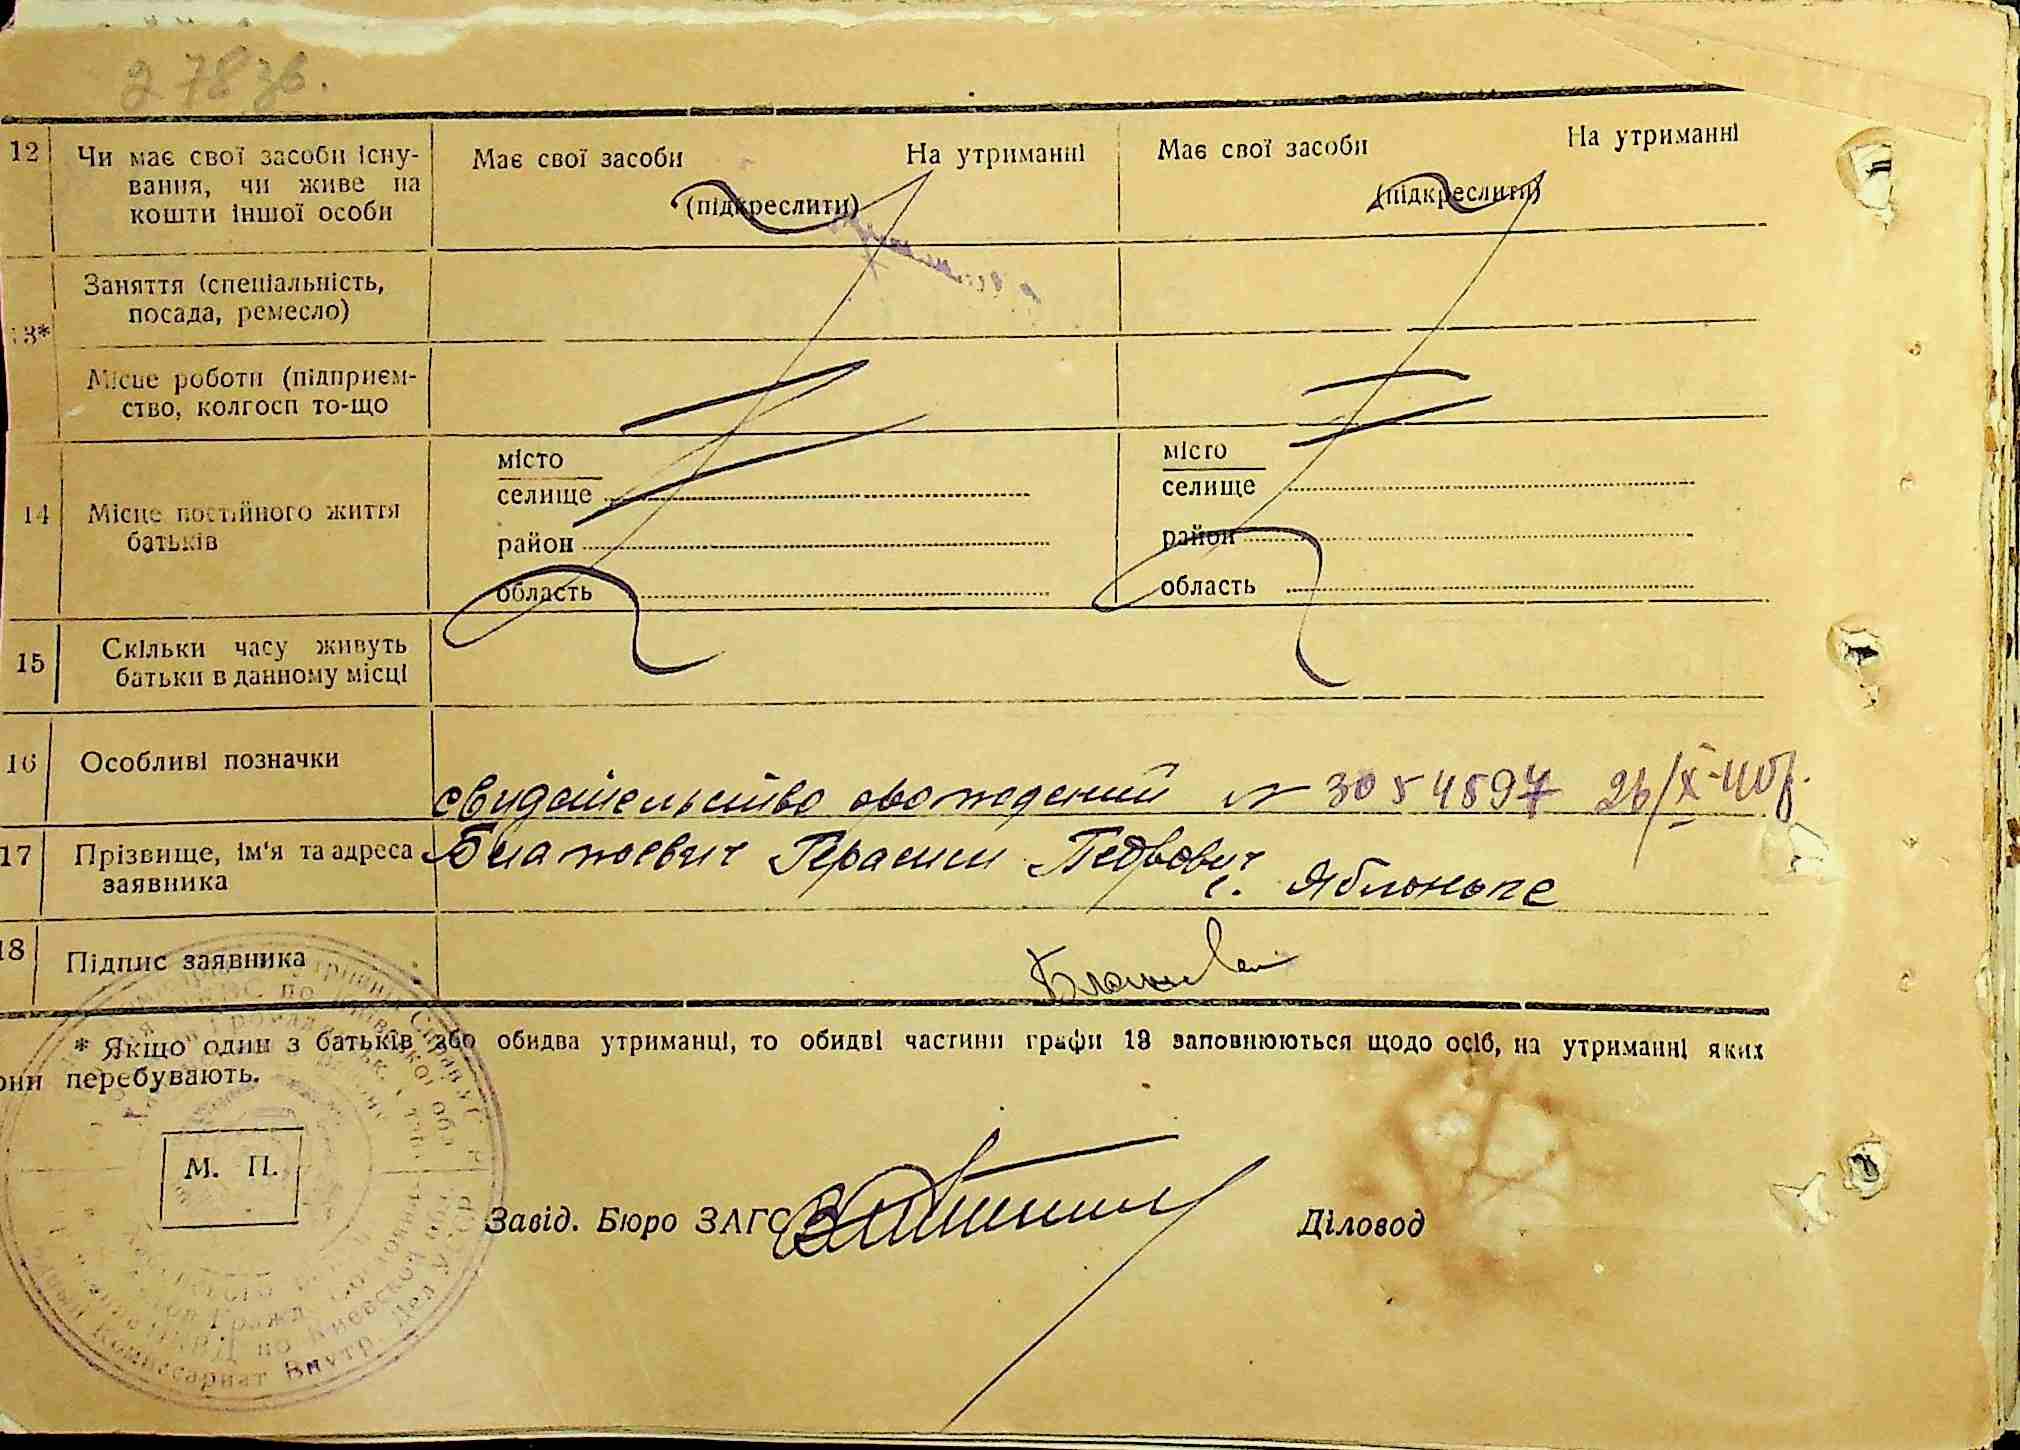 278 зв.
12 Чи має свої засоби існу-
вання, чи живе на
кошти іншої особи
Має свої засоби На утриманні
(підкреслити)
Має свої засоби На утриманні
(підкреслити)
13*
Заняття (спеціальність,
посада, ремесло)
Місце роботи (підприєм-
ство, колгосп то-що
14 Місце постійного життя
батьків
місто
селище
район
область
місто
селище
район
область
15 Скільки часу живуть
батьки в данному місці
16 Особливі позначки
свидетельство о рождении № 3054897 26/X-40г.
17 Прізвище, ім'я та адреса
заявника
Герасим Петрович
с.
18 Підпис заявника
* Якщо один з батьків або обидва утриманці, то обидві частини графи 13 заповнюються щодо осіб, на утриманні яких
они перебувають.
М. П.
Завід. Бюро ЗАГС
Діловод